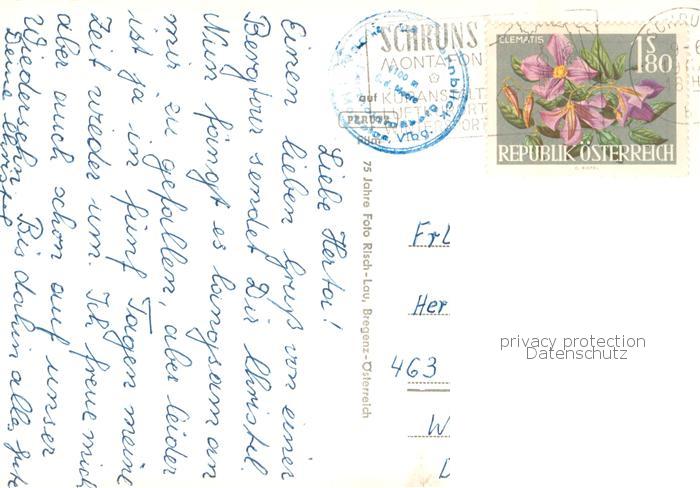 Liebe Herta!
Einen lieben Gruß von einer
Bergtour sendet Dir Christel.
Nun fängt es langsam an
mir zu gefallen, aber leider
ist ja in fünf Tagen meine
Zeit wieder um. Ich freue mich
aber auch schon auf unser
Wiedersehn. Bis dahin alles Gute
Deine Christel
75 Jahre Foto Risch-Lau, Bregenz-Österreich
SCHRUNS
MONTAFON
auf
Vlbg.
CLEMATIS
1S80
REPUBLIK ÖSTERREICH
Frl
Her
463
W
privacy protection
Datenschutz